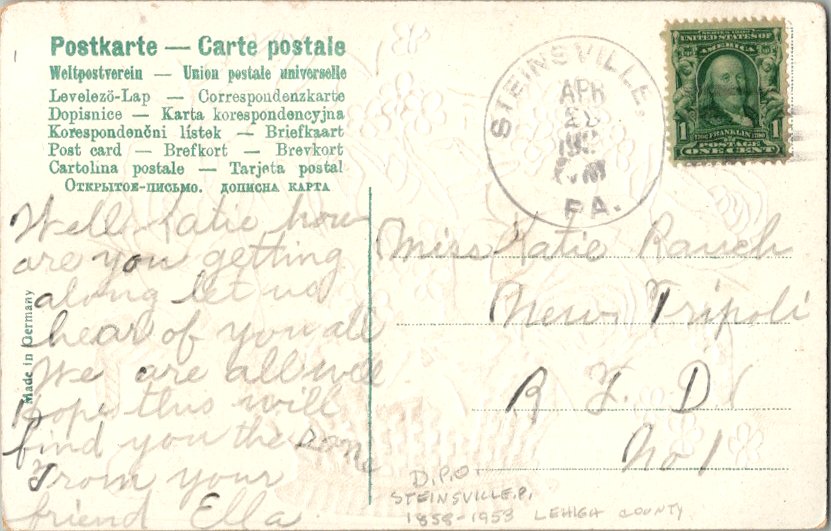 Postkarte — Carte postale
Weltpostverein — Union postale universelle
Levelező-Lap — Correspondenzkarte
Dopisnice — Karta korespondencyjna
Korespondenčni lístek — Briefkaart
Post card — Brefkort — Brevkort
Cartolina postale — Tarjeta postal
Открытое-письмо. дописна карта
Made in Germany
Well Katie how
are you getting
along let us
hear of you all
We are all well
hope this will
find you the same
From your
friend Ella
STEINSVILLE,
APR
PA.
SERIES 1902
UNITED STATES OF AMERICA
1 FRANKLIN 1
POSTAGE
ONE CENT
Miss Katie Rauch
New Tripoli
R. F. D.
No 1
D.P.O.
STEINSVILLE, P.
1858-1953 LEHIGH COUNTY